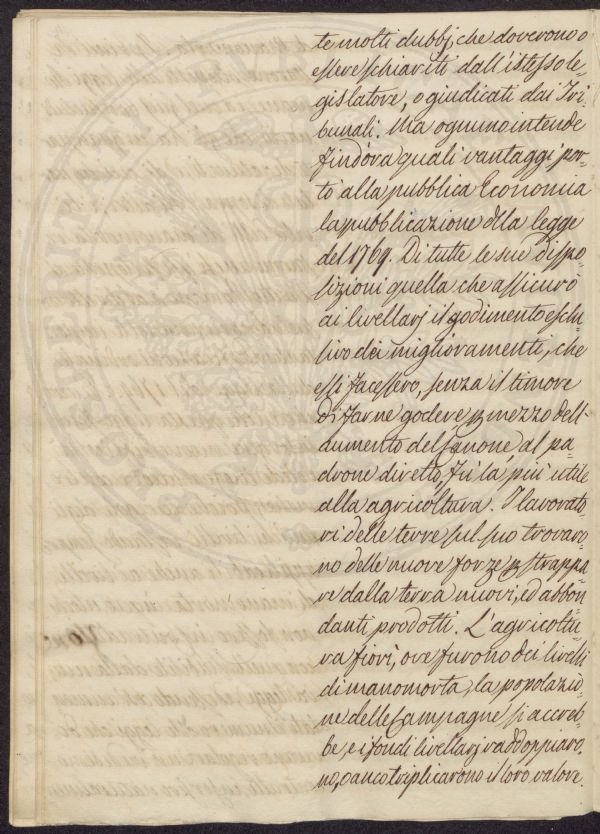 te molti dubbj, che doverono o
essere schiariti dall'istesso le-
gislatore, o giudicati dai Tri-
bunali. Ma ognuno intende
sind'ora quali vantaggi por-
tò alla pubblica Economia
la pubblicazione della legge
del 1769. Di tutte le sue dispo-
sizioni quella che assicurò
ai livellarj il godimento esclu-
sivo dei miglioramenti, che
essi facessero, senza il timore
di farne godere per mezzo dell'
aumento del Canone al pa-
drone diretto, fù la più utile
alla agricoltura. I lavorato-
ri delle terre sul suo trovaro-
no delle nuove forze per strappa-
re dalla terra nuovi, ed abbon-
danti prodotti. L'agricoltu-
ra fiorì, ove furono dei livelli
di manomorta, la popolazio-
ne delle Campagne si accreb-
be, e i fondi livellarj raddoppiaro-
no, o anco triplicarono il loro valore.